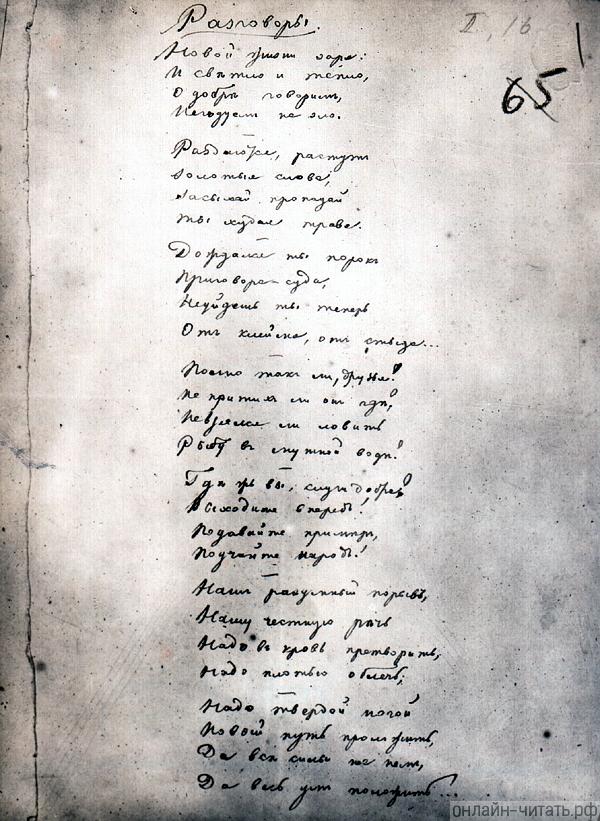 Разговоры.
II, 16
65
Новой жизни заря:
И свѣтло и тепло,
О добрѣ говоримъ,
Негодуемъ на зло.
растутъ
Золотыя слова,
Засыхай пропадай
Ты худая трава.
Дождался ты порокъ
Приговора-суда,
Неуйдешь ты теперь
Отъ клейма, отъ стыда...
Полно такъ ли, друзья!
Не притихъ ли онъ гдѣ,
Невзялся ли ловить
Рыбу въ мутной водѣ!
Гдѣ жъ вы, слуги добра!
Выходите впередъ!
Подавайте примѣръ,
Поучайте народъ!
Нашъ разумный порывъ,
Нашу честную рѣчь
Надо въ кровь претворить,
Надо плотью облечь;
Надо твердой ногой
Новый путь проложить,
Да всѣ силы на
Да весь умъ положить...
онлайн-читать.рф